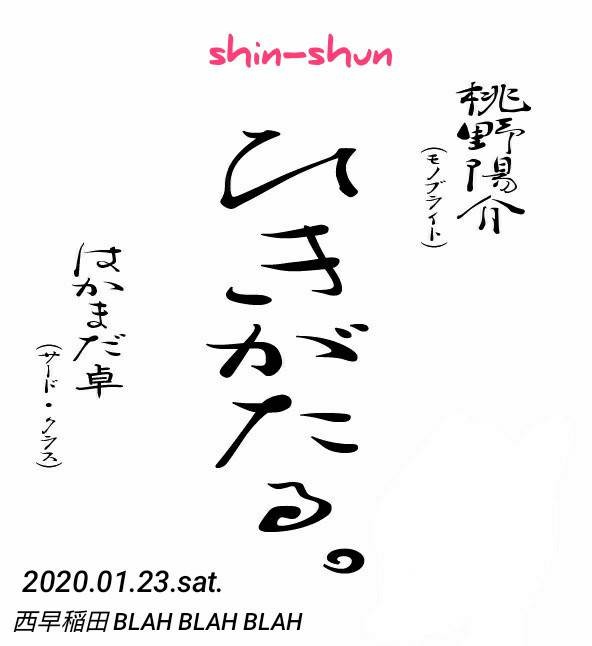 shin-shun
桃野陽介
(モノブライト)
ひきがたる。
はかまだ卓
(サード・クラス)
2020.01.23.sat.
西早稲田 BLAH BLAH BLAH